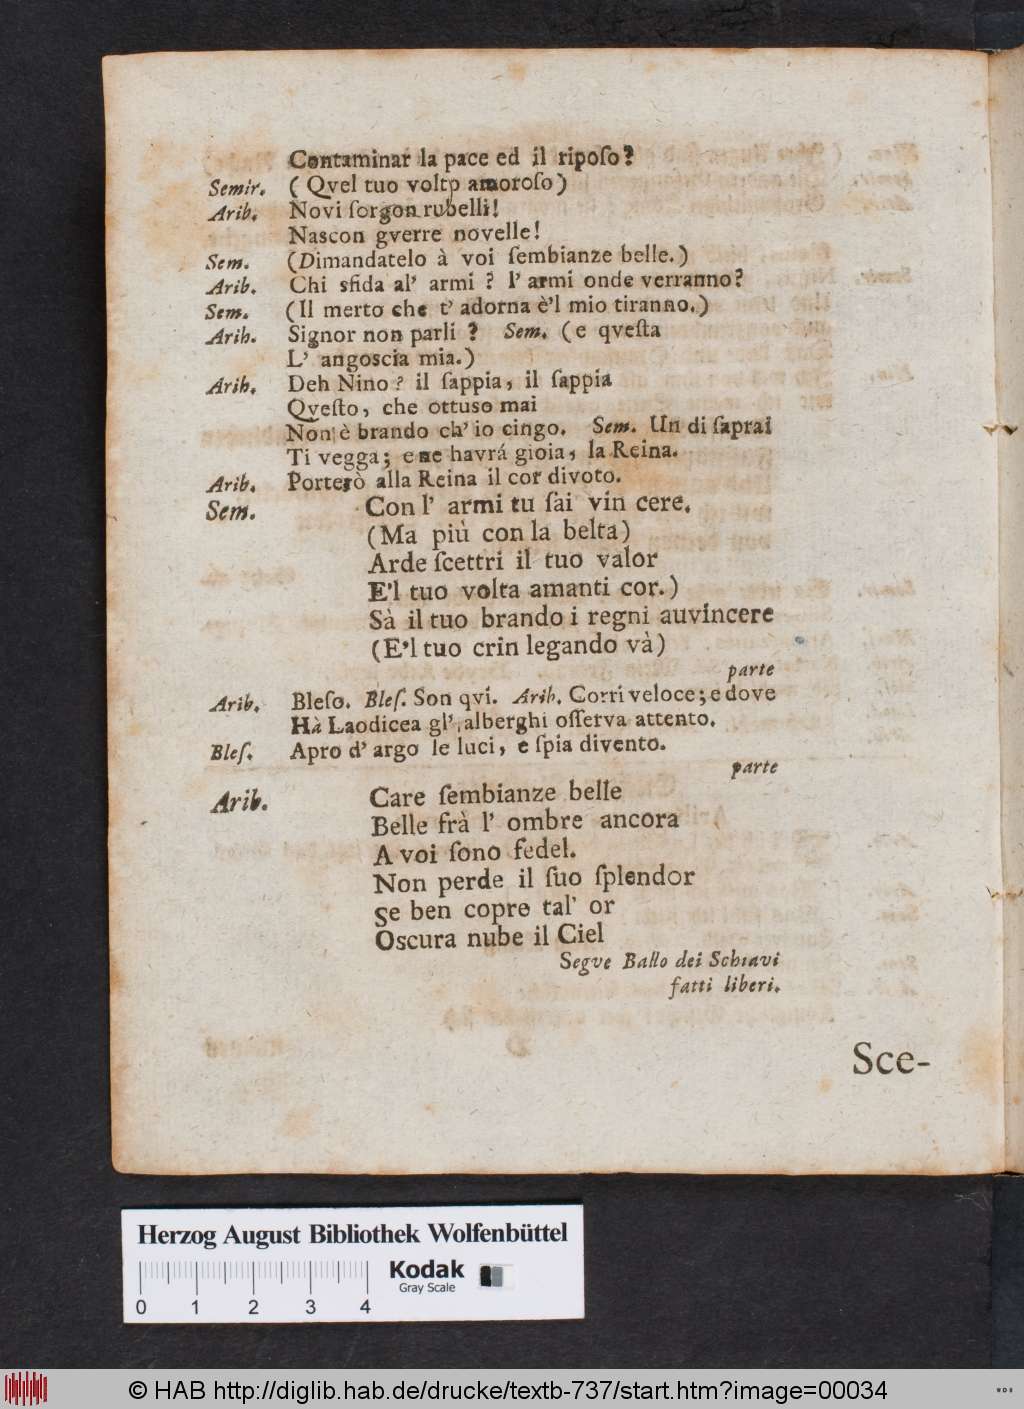 Contaminar la pace ed il ripoſo?
Semir. ( Qvel tuo volto amoroſo)
Arib. Novi ſorgon rubelli!
Naſcon gverre novelle!
Sem. (Dimandatelo à voi ſembianze belle.)
Arib. Chi sfida al' armi ? l' armi onde verranno?
Sem. (Il merto che t' adorna è'l mio tiranno.)
Arib. Signor non parli ? Sem. (e qveſta
L' angoscia mia.)
Arib. Deh Nino? il ſappia, il ſappia
Qveſto, che ottuso mai
Non è brando ch' io cingo. Sem. Un di ſaprai
Ti vegga; e ne havrá gioia, la Reina.
Arib. Porterò alla Reina il cor divoto.
Sem. Con l' armi tu ſai vin cere.
(Ma più con la belta)
Arde ſcettri il tuo valor
E'l tuo volta amanti cor.)
Sà il tuo brando i regni auvincere
(E'l tuo crin legando và)
parte
Arib. Bleſo. Bleſ. Son qvi. Arib. Corri veloce; e dove
Hà Laodicea gl' alberghi oſſerva attento.
Bleſ. Apro d' argo le luci, e ſpia divento.
parte
Arib. Care ſembianze belle
Belle frà l' ombre ancora
A voi ſono fedel.
Non perde il ſuo ſplendor
Se ben copre tal' or
Oscura nube il Ciel
Segve Ballo dei Schiavi
fatti liberi.
Sce-
Herzog August Bibliothek Wolfenbüttel
Kodak
Gray Scale
0 1 2 3 4
© HAB http://diglib.hab.de/drucke/textb-737/start.htm?image=00034